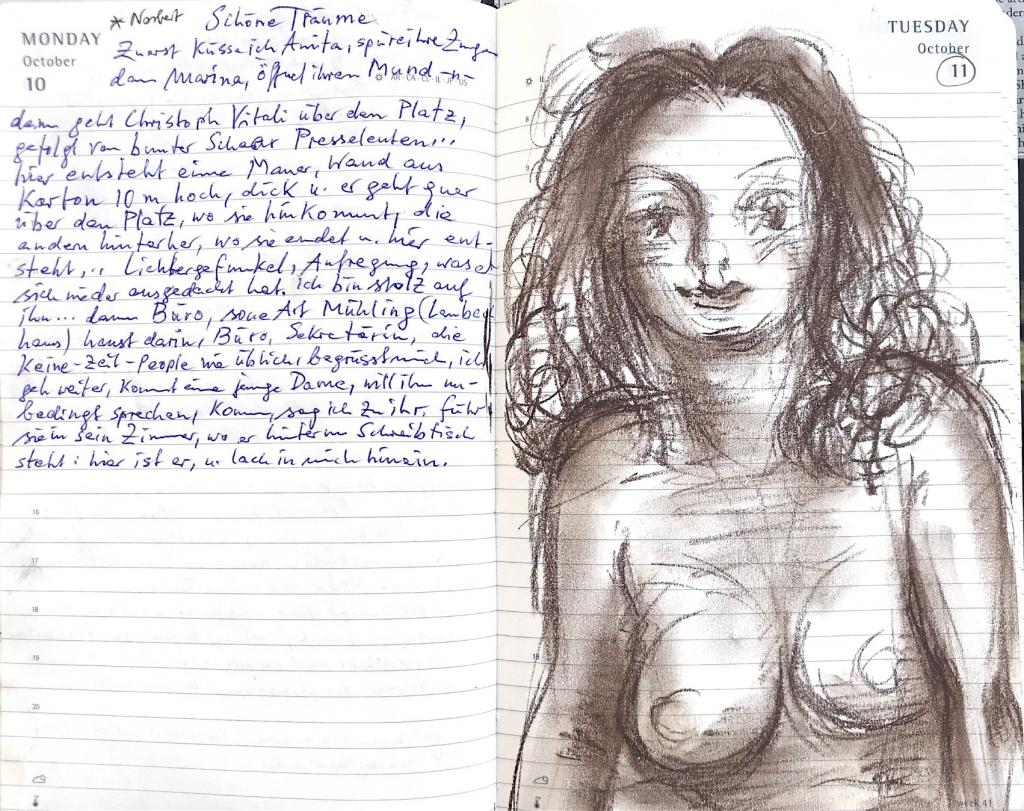 MONDAY
October
10
* Norbert
Schöne Träume
Zuerst küsse ich Anita, spüre ihre Zunge
dann Marina, öffnet ihren Mund
dann geht Christoph Vitali über den Platz,
gefolgt von bunter Schaar Presseleuten...
hier entsteht eine Mauer, Wand aus
Karton 10 m hoch, dick u. er geht quer
über den Platz, wo sie hinkommt, die
andern hinterher, wo sie endet u. hier ent-
steht,.. Lichtergefunkel, Aufregung, was er
sich wieder ausgedacht hat. ich bin stolz auf
ihn... dann Büro, so ne Art Mühling (Lenbach
haus) haust darin, Büro, Sekretärin, die
Keine-Zeit-People wie üblich, begrüsst mich, ich
geh weiter, kommt eine junge Dame, will ihn un-
bedingt sprechen, komm, sag ich zu ihr, führ
sie in sein Zimmer, wo er hinterm Schreibtisch
steht: hier ist er, u. lach in mich hinein.
16
17
18
19
20
TUESDAY
October
11
19
week 41